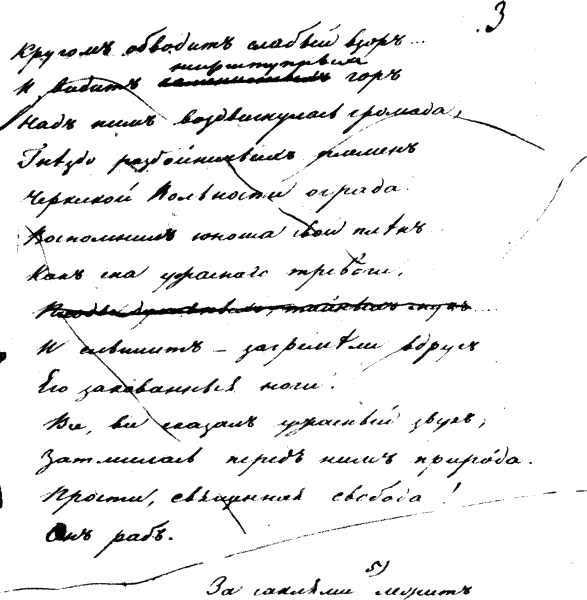 3
Кругомъ обводитъ слабый взоръ...
неприступныхъ
И видитъ горъ
Надъ нимъ воздвигнулась громада,
Гнѣздо разбойничьихъ племенъ
Черкеской вольности ограда.
Воспомнилъ юноша свой плѣнъ
Какъ сна ужаснаго тревоги,
И слышитъ – загремѣли вдругъ
Его закованныя ноги.
Все, все сказалъ ужасный звукъ;
Затмилась передъ нимъ природа.
Прости, священная свобода!
Онъ рабъ.
За саклями 5) лежитъ